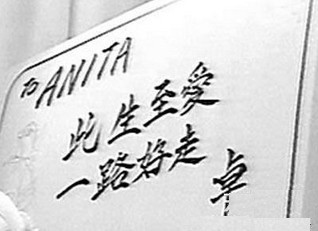 To ANITA
此生至愛
一路好走
卓